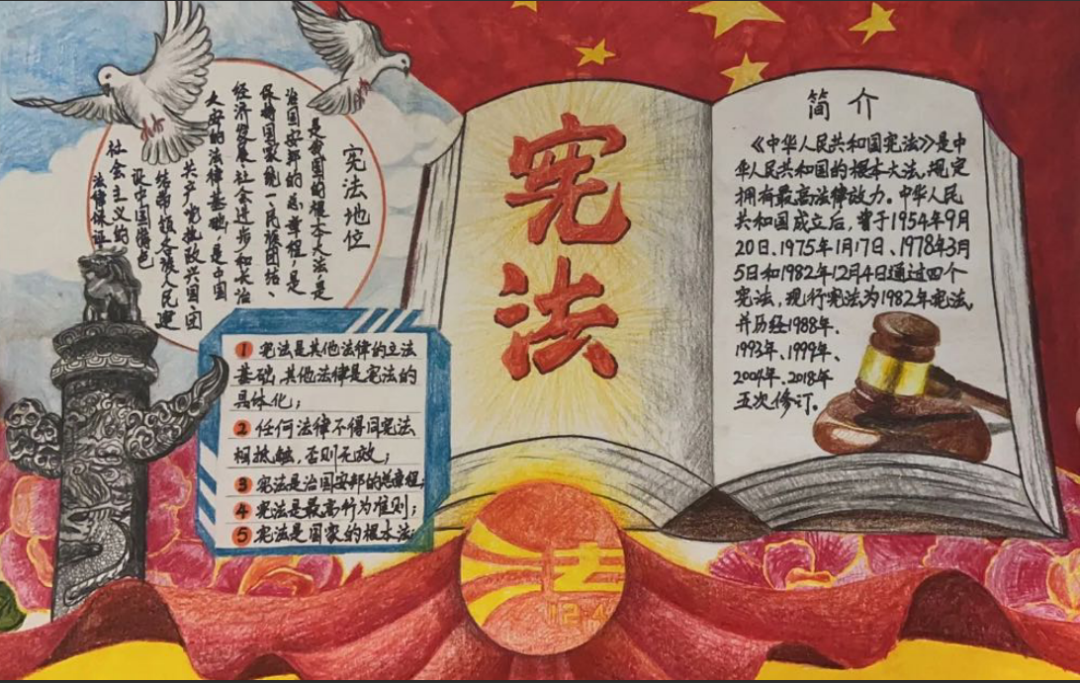 宪法地位
是我国的根本大法,是
治国安邦的总章程,是
保持国家统一、民族团结、
经济发展、社会进步和长治
久安的法律基础,是中国
共产党执政兴国、团
结带领各族人民建
设中国特色
社会主义的
法律保证
1 宪法是其他法律的立法
基础,其他法律是宪法的
具体化;
2 任何法律不得同宪法
相抵触,否则无效;
3 宪法是治国安邦的总章程;
4 宪法是最高行为准则;
5 宪法是国家的根本法
宪法
简介
《中华人民共和国宪法》是中
华人民共和国的根本大法,规定
拥有最高法律效力。中华人民
共和国成立后,曾于1954年9月
20日、1975年1月17日、1978年3月
5日和1982年12月4日通过四个
宪法,现行宪法为1982年宪法,
并历经1988年、
1993年、1999年、
2004年、2018年
五次修订。
法
12.4